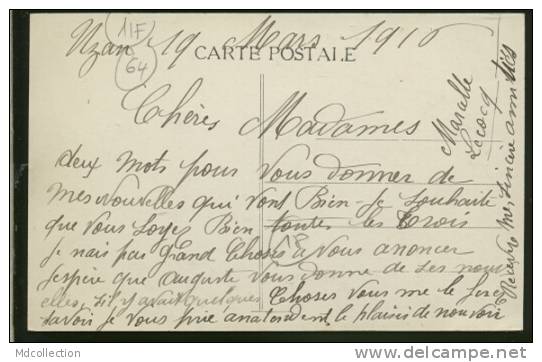 Uzan 19 Mars 1916
11F
64
CARTE POSTALE
Chères Madames
deux mots pour Vous donner de
mes nouvelles qui vont Bien Je Souhaite
que Vous Soyez Bien toutes les trois
18
je nais pas Grand Choses a Vous anoncer
jespère que auguste Vous donne de ses nouv
elles, sil y avait quelques Choses Vous me le ferez
savoir je Vous prie anatendent le plaisir de nouvoir
Recevez mes Sincère amitiés
Lecocq
Mdcollection
www.delcampe.net